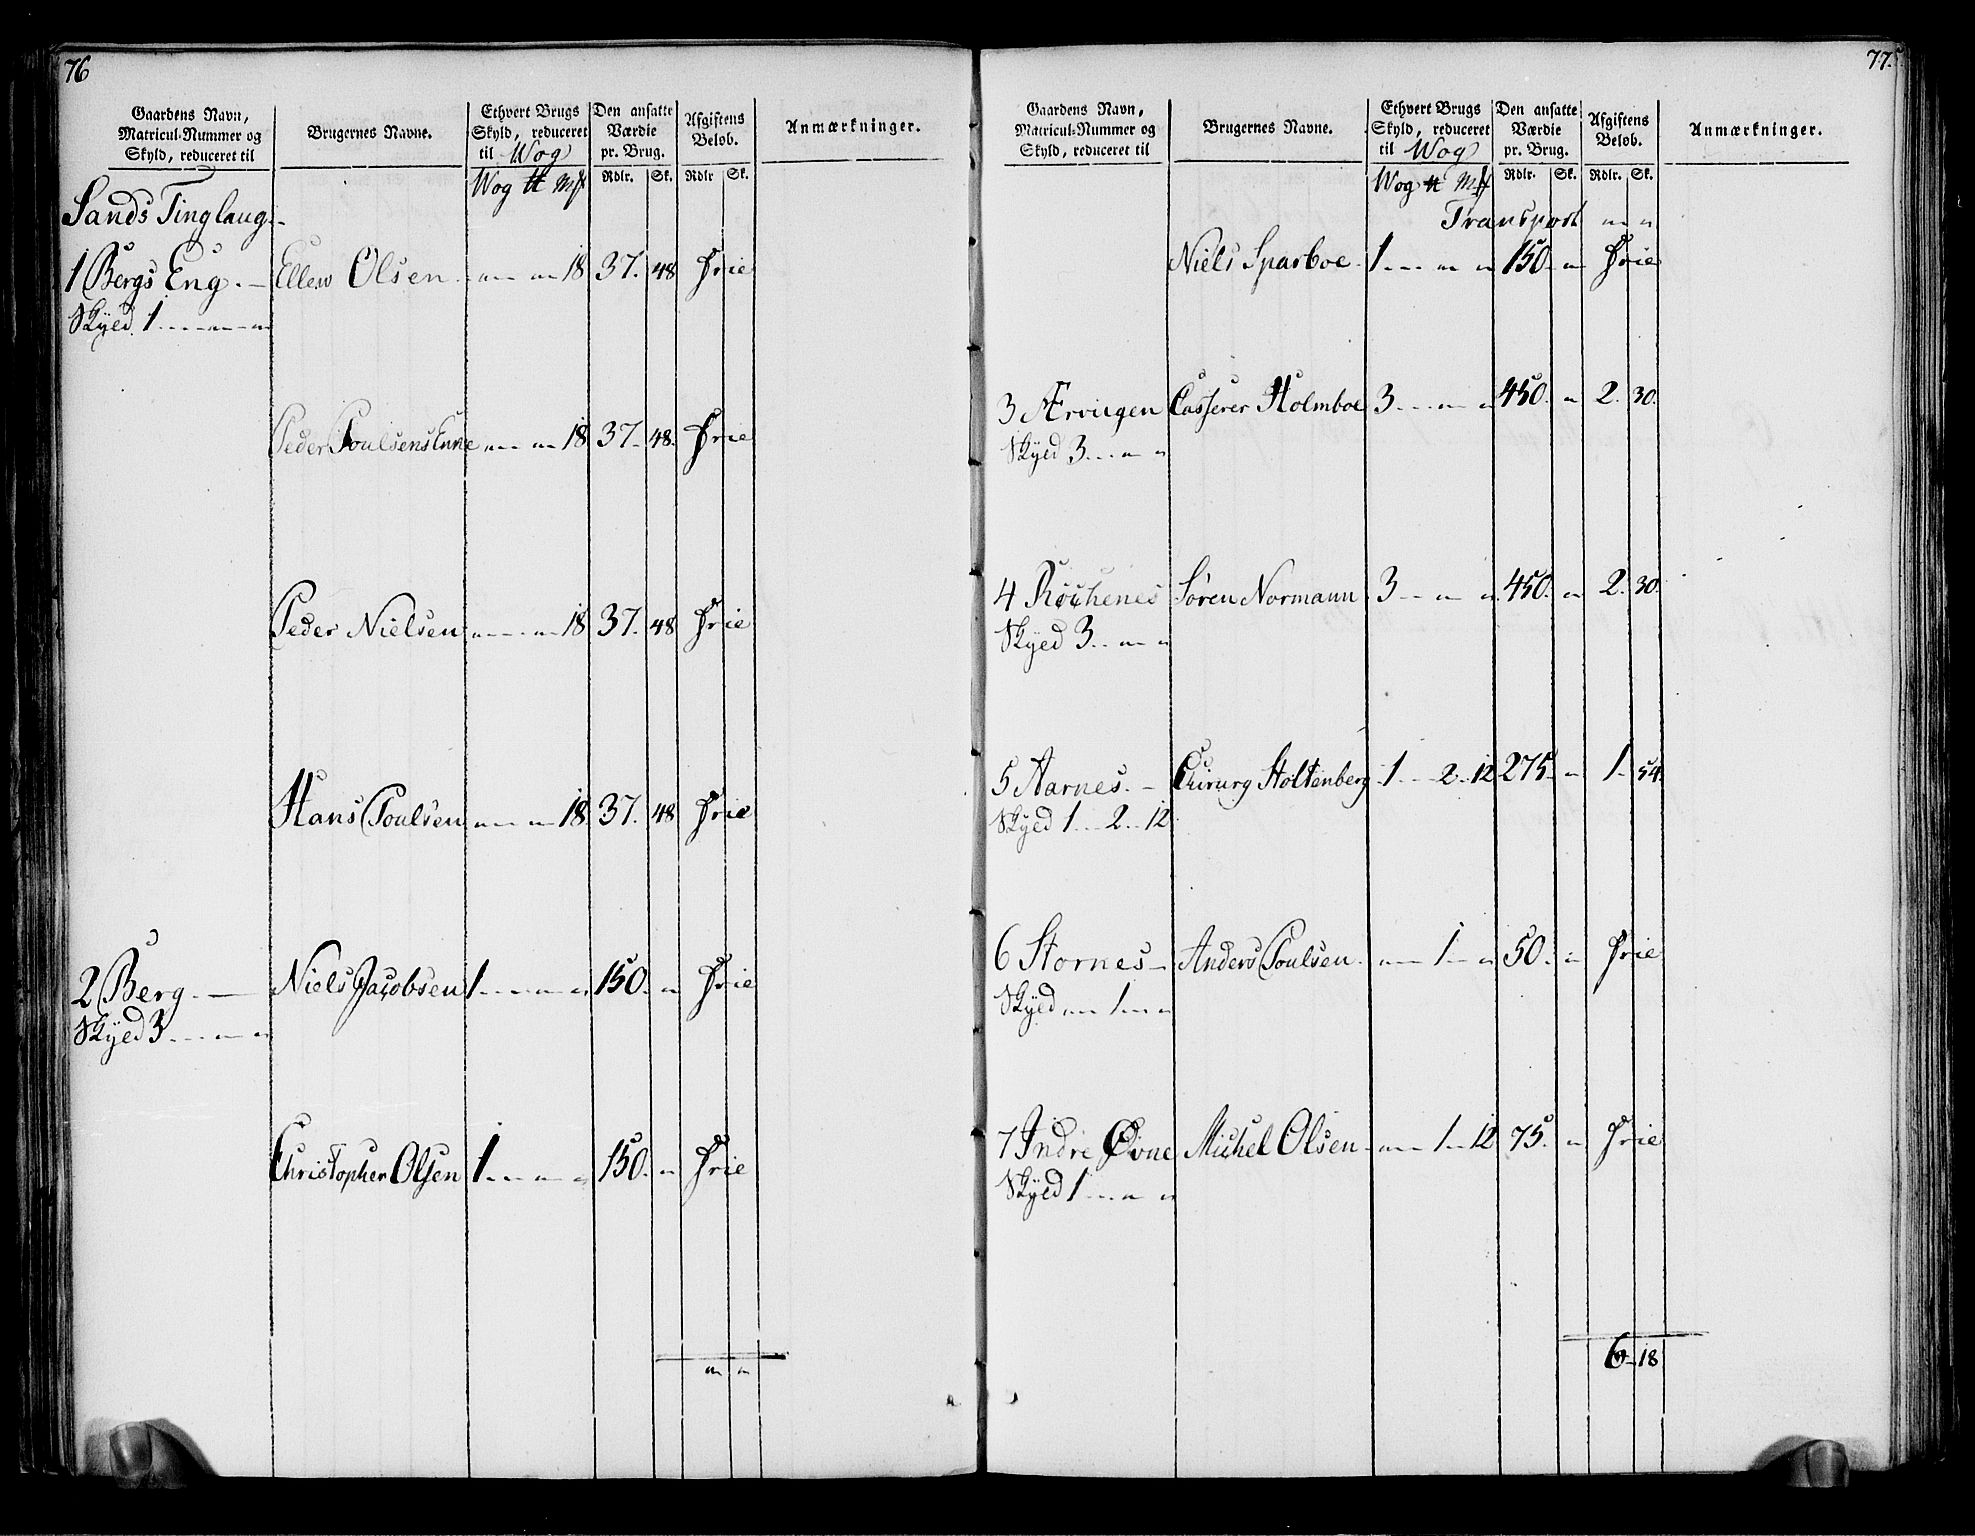 76
Gaardens Navn, Matricul-Nummer og Skyld, reduceret til
Brugernes Navne.
Ethvert Brugs Skyld, reduceret til Wog
Den ansatte Værdie pr. Brug.
Afgiftens Beløb.
Anmærkninger.
Wog ℔ Mk Rdlr. Sk. Rdlr Sk.
Sands Tinglaug.
1 Bergs Eng. — Ellen Olsen - " - " 18 37. 48 Frie
Skyld 1 - - " - "
Peder Poulsens Enke " - " 18 37. 48. Frie
Peder Nielsen " - - " 18 37. 48 Frie
Hans Poulsen " - " 18. 37. 48 Frie
2 Berg. — Niels Jacobsen 1 - - " - " 150. " Frie
Skyld 3 - - " - "
Christopher Olsen 1 - - " - " 150. " Frie
" "
77.
Gaardens Navn, Matricul-Nummer og Skyld, reduceret til
Brugernes Navne.
Ethvert Brugs Skyld, reduceret til Wog
Den ansatte Værdie pr. Brug.
Afgiftens Beløb.
Anmærkninger.
Wog ℔ Mk Rdlr. Sk. Rdlr. Sk.
Transport " "
Niels Sparboe 1 - - " " 150. " Frie
3 Ærviigen Casserer Holmboe 3 - - " - " 450. " 2. 30.
Skyld 3 - - " "
4 Røchenes Søren Normann 3 - " " 450. " 2. 30.
Skyld 3 - " "
5 Aarnes. - Chirurg Stoltenberg 1 - 2 - 12 275. " 1. 54.
Skyld 1 - 2 - 12
6 Stornes - Anders Poulsen. " - 1 - " 50. " Frie
Skyld " - 1 - "
7 Indre Øvne Michel Olsen - " - 1 - 12 75. " Frie
Skyld 1 - - " "
6 - 18